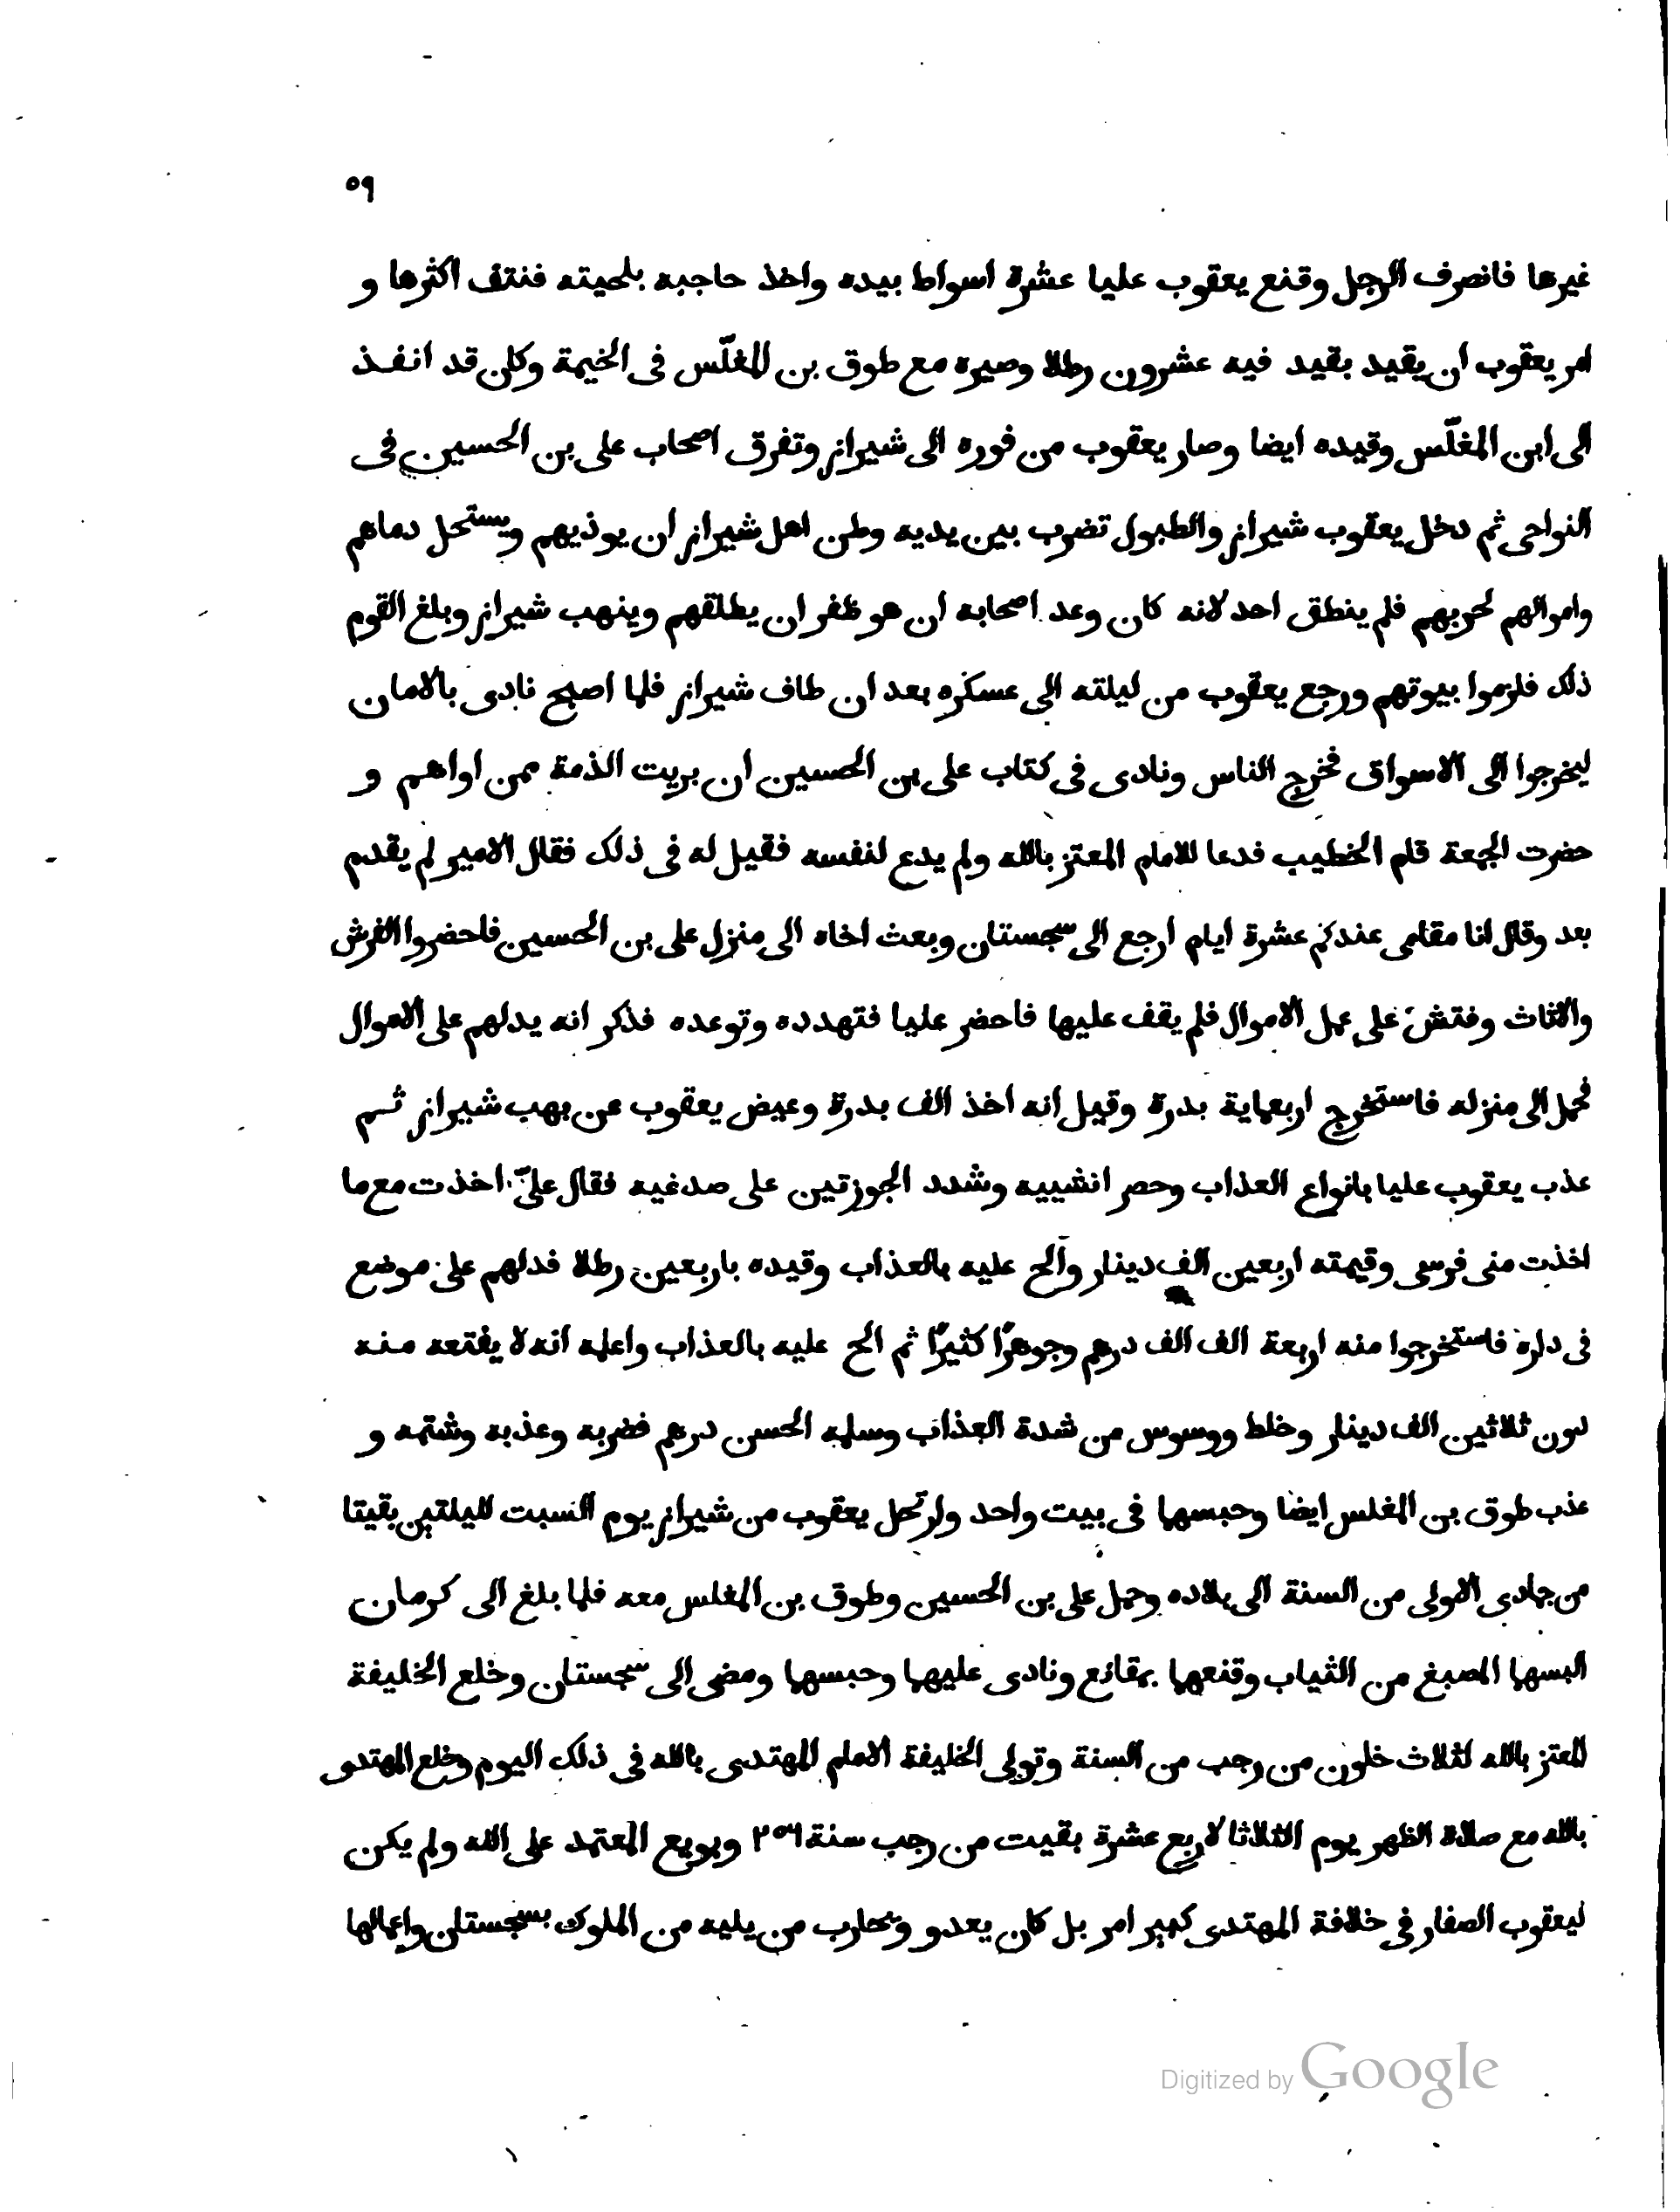 ٥٩
غيرها فانصرف الرجل وقنع يعقوب عليا عشرة اسواط بيده واخذ حاجبه بلحيته فنتف اكثرها و
امر يعقوب ان يقيد بقيد فيه عشرون رطلا وصيره مع طوق بن المغلّس فى الخيمة وكان قد انفذ
الى ابن المغلّس وقيده ايضا وصار يعقوب من فوره الى شيراز وتفرق اصحاب على بن الحسين فى
النواحى ثم دخل يعقوب شيراز والطبول تضرب بين يديه وظن اهل شيراز ان يوذيهم ويستحل دماهم
واموالهم لحربهم فلم ينطق احد لانه كان وعد اصحابه ان هو ظفر ان يطلقهم وينهب شيراز وبلغ القوم
ذلك فلزموا بيوتهم ورجع يعقوب من ليلته الى عسكره بعد ان طاف شيراز فلما اصبح نادى بالامان
ليخرجوا الى الاسواق فخرج الناس ونادى فى كتاب على بن الحسين ان بريت الذمة ممن اواهم و
حضرت الجمعة قام الخطيب فدعا للامام المعتز بالله ولم يدع لنفسه فقيل له فى ذلك فقال الامير لم يقدم
بعد وقال انا مقامى عندكم عشرة ايام ارجع الى سجستان وبعث اخاه الى منزل على بن الحسين فاحضروا الفرش
والاثاث وفتش على عمل الاموال فلم يقف عليها فاحضر عليا فتهدده وتوعده فذكر انه يدلهم على الاموال
فحمل الى منزله فاستخرج اربعماية بدرة وقيل انه اخذ الف بدرة وعيض يعقوب عن بهب شيراز ثم
عذب يعقوب عليا بانواع العذاب وحصر انشييه وشدد الجوزتين على صدغيه فقال علىّ اخذت مع ما
اخذت منى فرسى وقيمته اربعين الف دينار وألح عليه بالعذاب وقيده باربعين رطلا فدلهم على موضع
فى داره فاستخرجوا منه اربعة الف الف درهم وجوهرًا كثيرًا ثم الح عليه بالعذاب واعلمه انه لا يفتعه منه
دون ثلاثين الف دينار وخلط ووسوس من شدة العذاب وسلمه الحسن درهم فضربه وعذبه وشتمه و
عذب طوق بن المغلس ايضا وحبسهما فى بيت واحد وارتحل يعقوب من شيراز يوم السبت لليلتين بقيتا
من جمادى الاولى من السنة الى بلاده وحمل على بن الحسين وطوق بن المغلس معه فلما بلغ الى كرمان
البسهما المصبغ من الثياب وقنعهما بمقانع ونادى عليهما وحبسهما ومضى الى سجستان وخلع الخليفة
المعتز بالله لثلاث خلون من رجب من السنة وتولى الخليفة الامام المهتدى بالله فى ذلك اليوم وخلع المهتدى
بالله مع صلاة الظهر يوم الثلاثا لاربع عشرة بقيت من رجب سنة ٢٥٦ وبويع المعتمد على الله ولم يكن
ليعقوب الصفار فى خلافة المهتدى كبير امر بل كان يعدو وتحارب من يليه من الملوك بسجستان واعمالها
Digitized by Google